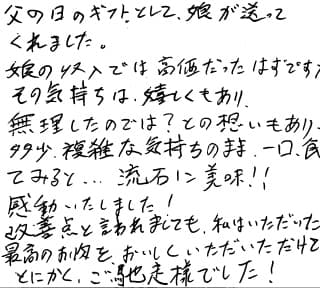 父の日のギフトとして、娘が送って
くれました。
娘の収入では高価だったはずです
その気持ちは、嬉しくもあり、
無理したのでは?との想いもあり、
多少、複雑な気持ちのまま、一口、食
てみると... 流石に美味!!
感動いたしました!
改善点と言われましても、私はいただいた
最高のお肉を、おいしくいただいただけで
とにかく、ご馳走様でした!